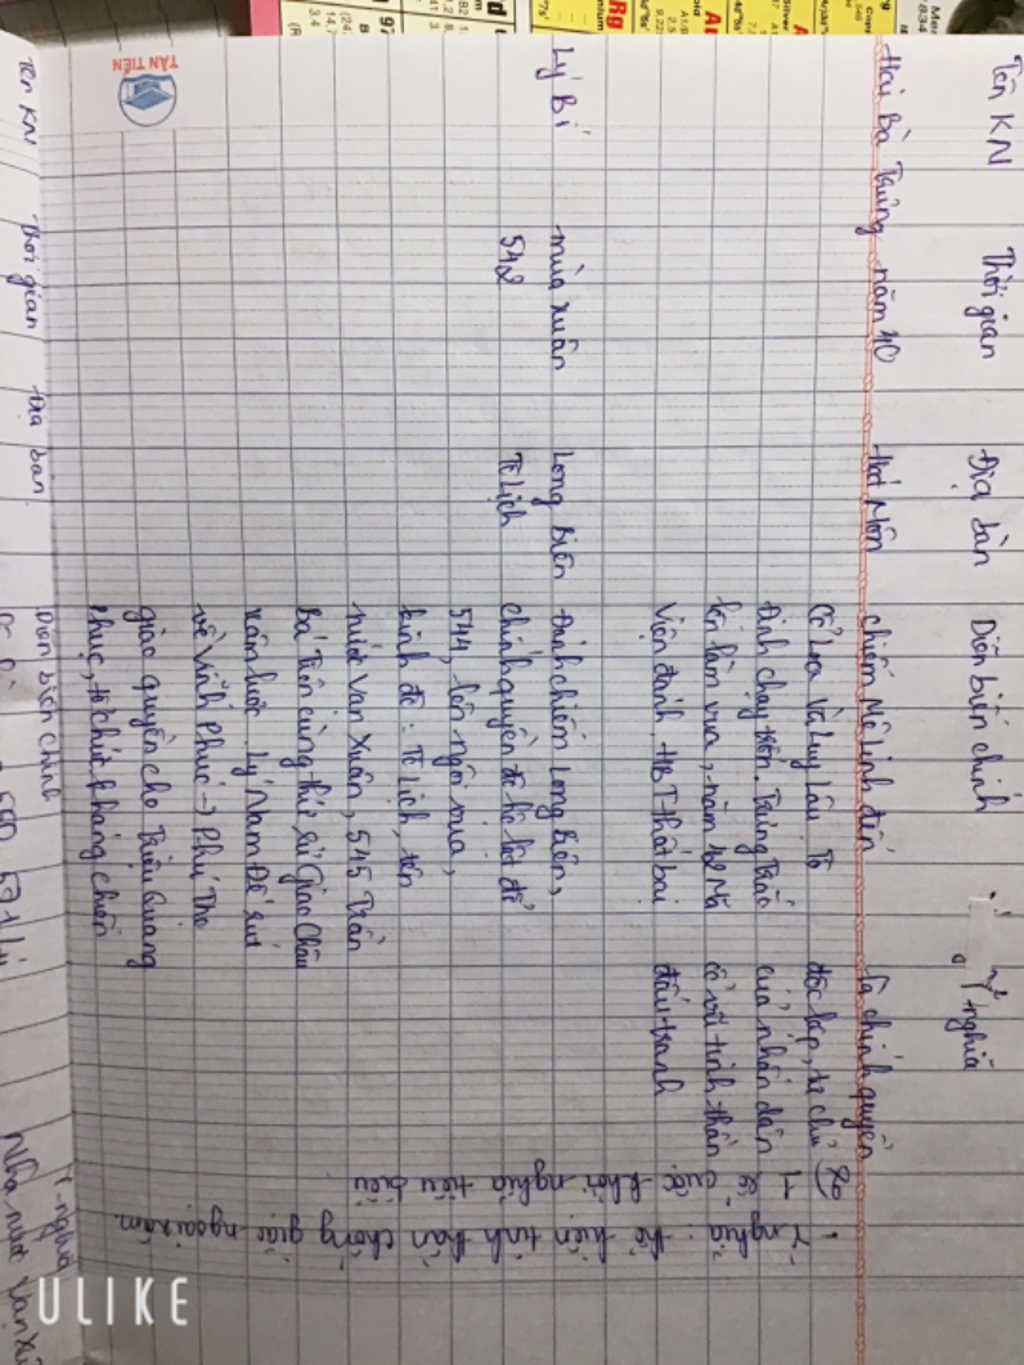 Tên KN Thời gian Địa bàn Diễn biến chính ý nghĩa
Hai Bà Trưng năm 40 Hát Môn chiếm Mê Linh đến là chính quyền
Cổ Loa và Luy Lâu. Tô độc lập, tự chủ
Định chạy trốn. Trưng Trắc của nhân dân
lên làm vua, năm 42 Mã cổ vũ tinh thần
Viện đánh, HBT thất bại đấu tranh
Lý Bí mùa xuân Long Biên Đánh chiếm Long Biên,
542 Tô Lịch chính quyền đô hộ lật đổ
544, lên ngôi vua,
kinh đô: Tô Lịch, tên
nước Vạn Xuân, 545 Trần
Bá Tiên cùng thứ sử Giao Châu
xâm lược. Lý Nam Đế rút
về Vĩnh Phúc -> Phú Thọ
giao quyền cho Triệu Quang
Phục, tổ chức kháng chiến
2)
1 số cuộc khởi nghĩa tiêu biểu
Ý nghĩa: thể hiện tinh thần chống giặc ngoại xâm.
Tên KN Thời gian Địa bàn Diễn biến chính Ý nghĩa
571
Nhà nước Vạn
TÂN TIẾN
ULIKE